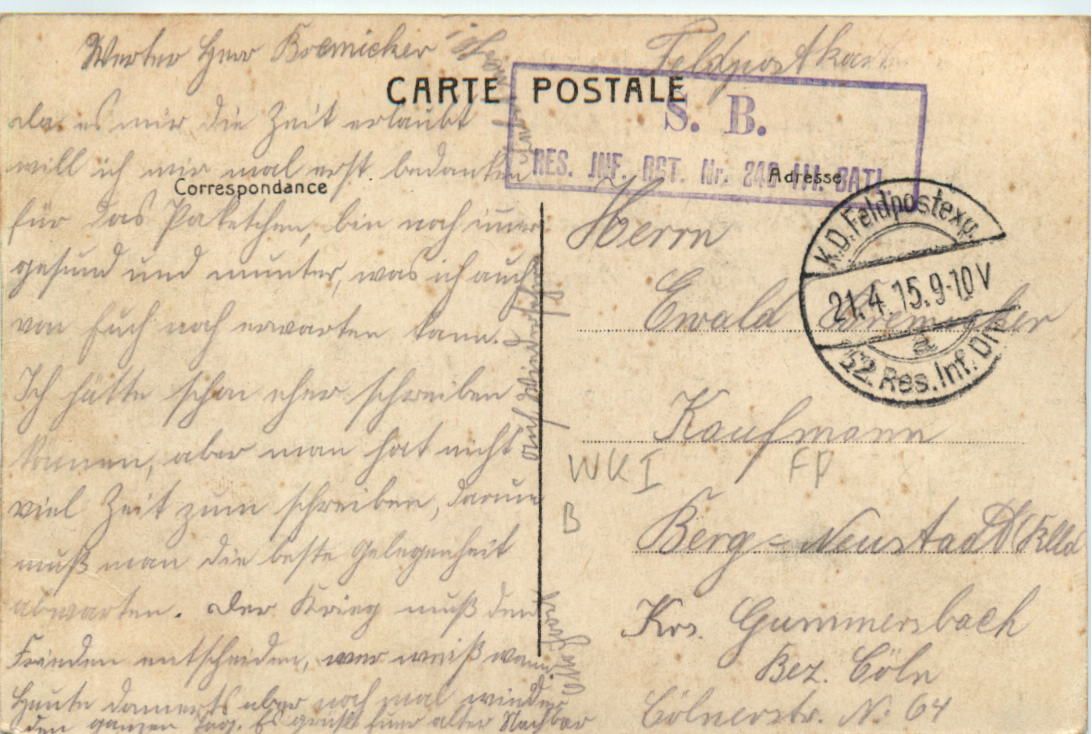 Werter Herr Bremicker
CARTE POSTALE
Correspondance
da es mir die Zeit erlaubt
will ich mir mal erst bedanken
für das Paketchen, bin noch immer
gesund und munter, was ich auch
von Euch noch erwarten kann.
Ich hätte schon eher schreiben
können, aber man hat nicht
viel Zeit zum schreiben, darum
muß man die beste Gelegenheit
abwarten. Der Krieg muß den
Frieden entscheiden, wer weiß wann.
Heute donnerts aber noch mal wieder
den ganzen Tag. Es grüßt Euer alter Nachbar
auf Wiedersehn
Feldpostkarte
S. B.
RES. INF. RGT. Nr. 240 III. BATL.
Adresse
K.D. Feldpostexp.
21.4.15.9-10V
a
52. Res. Inf. Div.
Herrn
Ewald Bremicker
Kaufmann
WKI FP
B
Berg-Neustadt
Krs. Gummersbach
Bez. Cöln
Cölnerstr. No 64